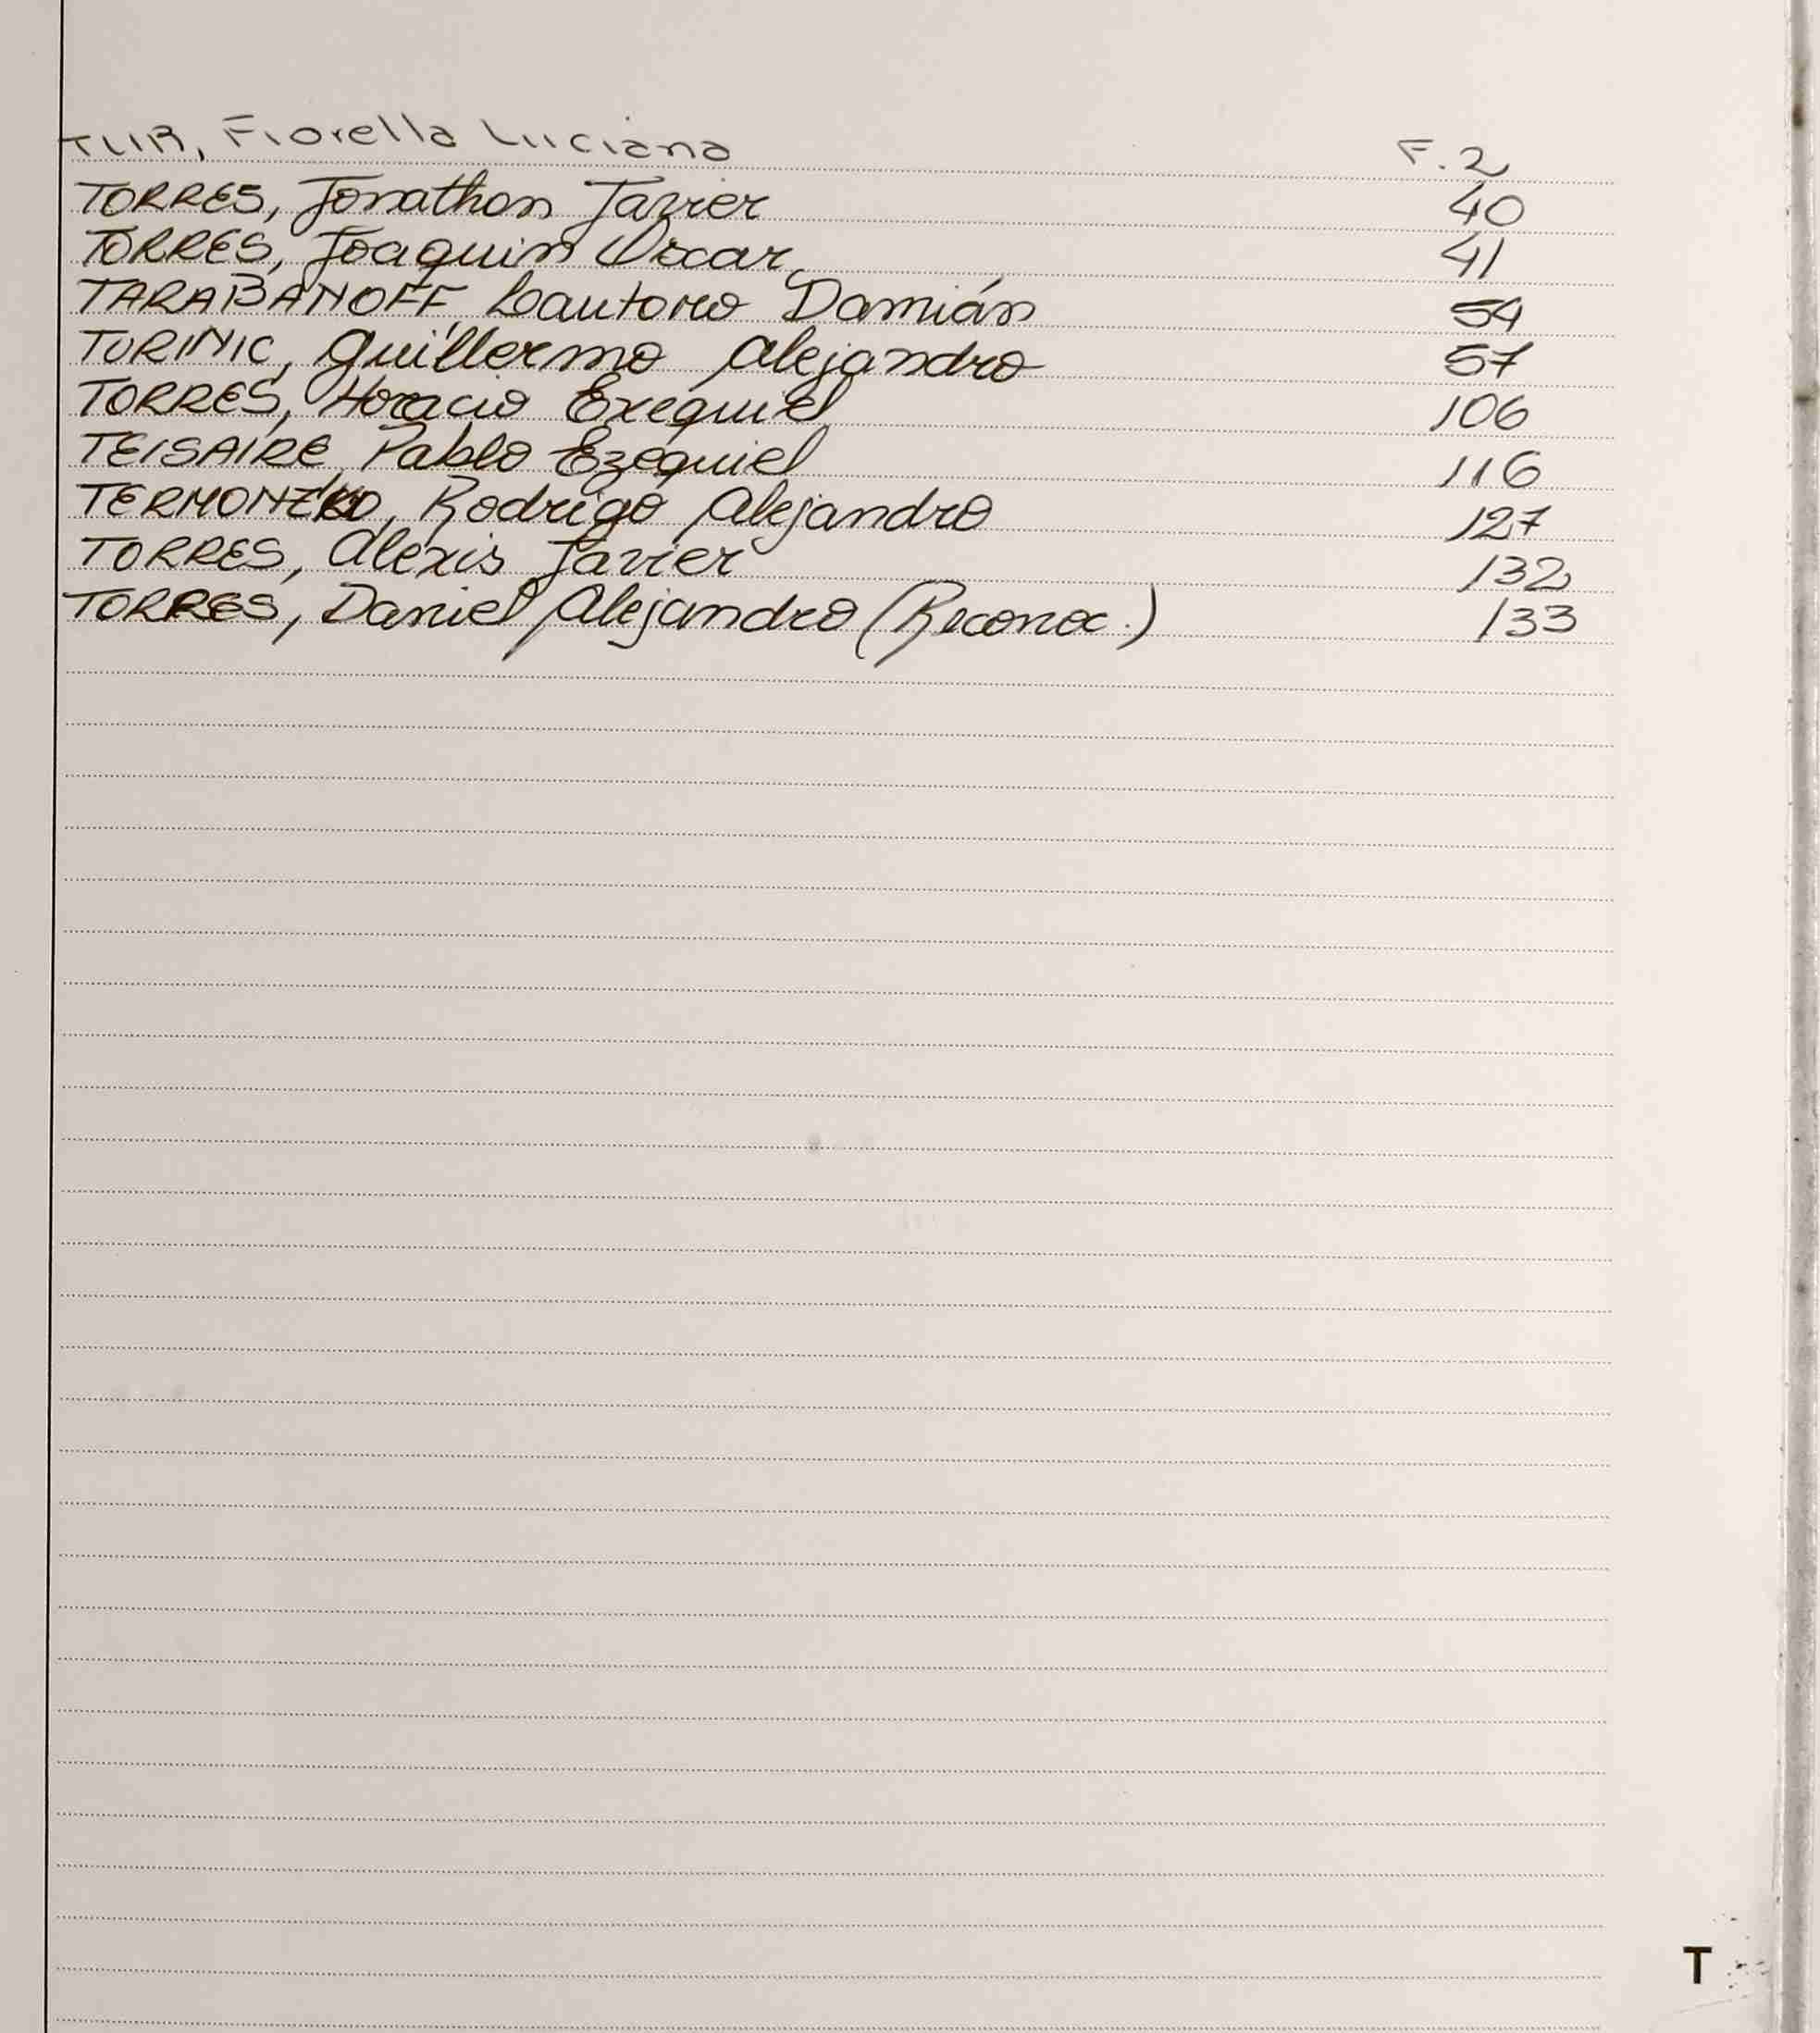 TUR, Fiorella Luciana F. 2
TORRES, Jonathan Javier 40
TORRES, Joaquin Oscar 41
TARABANOFF Lautaro Damián 54
TURINIC, Guillermo Alejandro 57
TORRES, Horacio Exequiel 106
TEISAIRE, Pablo Ezequiel 116
Rodrigo Alejandro 127
TORRES, Alexis Javier 132
TORRES, Daniel Alejandro (Reconoc.) 133
T